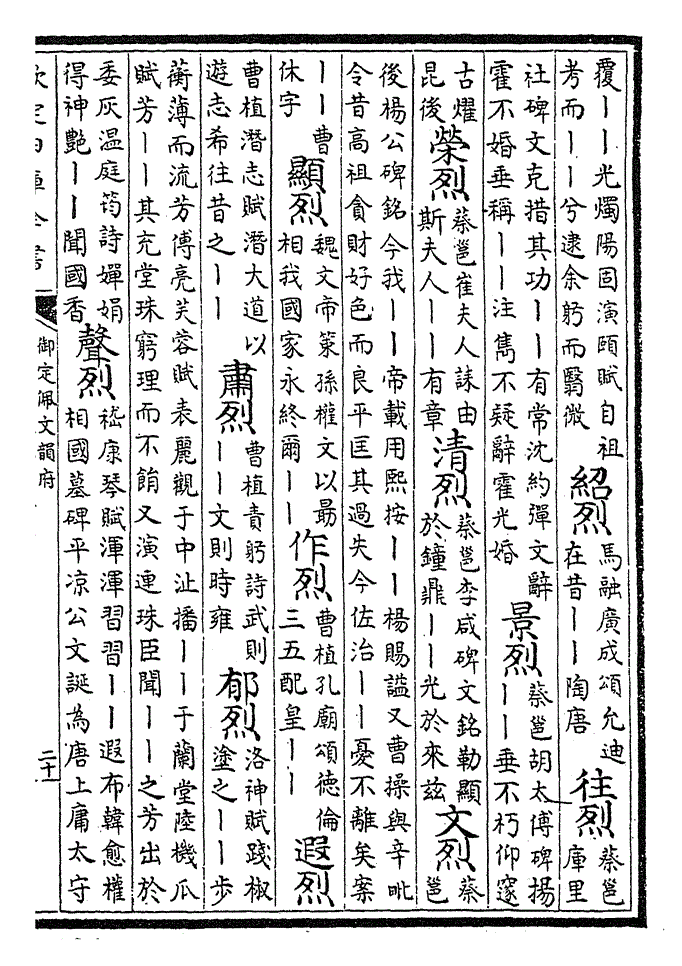 覆丨丨光燭陽固演頤賦自祖
考而丨丨兮逮余躬而翳微
紹烈
馬融廣成頌允迪
在昔丨丨陶唐
往烈
蔡邕
庫里
社碑文克措其功丨丨有常沈約彈文辭
霍不婚垂稱丨丨注雋不疑辭霍光婚
景烈
蔡邕胡太傅碑揚
丨丨垂不朽仰邃
古燿
昆後
榮烈
蔡邕崔夫人誄由
斯夫人丨丨有章
清烈
蔡邕李咸碑文銘勒顯
於鐘鼎丨丨光於來茲
文烈
蔡
邕
後楊公碑銘今我丨丨帝載用熙按丨丨楊賜謚又曹操與辛毗
令昔高祖貪財好色而良平匡其過失今佐治丨丨憂不離矣案
丨丨曹
休字
顯烈
魏文帝策孫權文以勗
相我國家永終爾丨丨
作烈
曹植孔廟頌德倫
三五配皇丨丨
遐烈
曹植潛志賦潛大道以
遊志希往昔之丨丨
肅烈
曹植責躬詩武則
丨丨文則時雍
郁烈
洛神賦踐椒
塗之丨丨步
蘅薄而流芳傅亮芙蓉賦表麗觀于中沚播丨丨于蘭堂陸機瓜
賦芳丨丨其充堂珠窮理而不餇又演連珠臣聞丨丨之芳出於
委灰温庭筠詩嬋娟
得神艷丨丨聞國香
聲烈
嵇康琴賦渾渾習習丨丨遐布韓愈權
相國墓碑平凉公文誕為唐上庸太守
欽定四庫全書
御定佩文韻府
二十